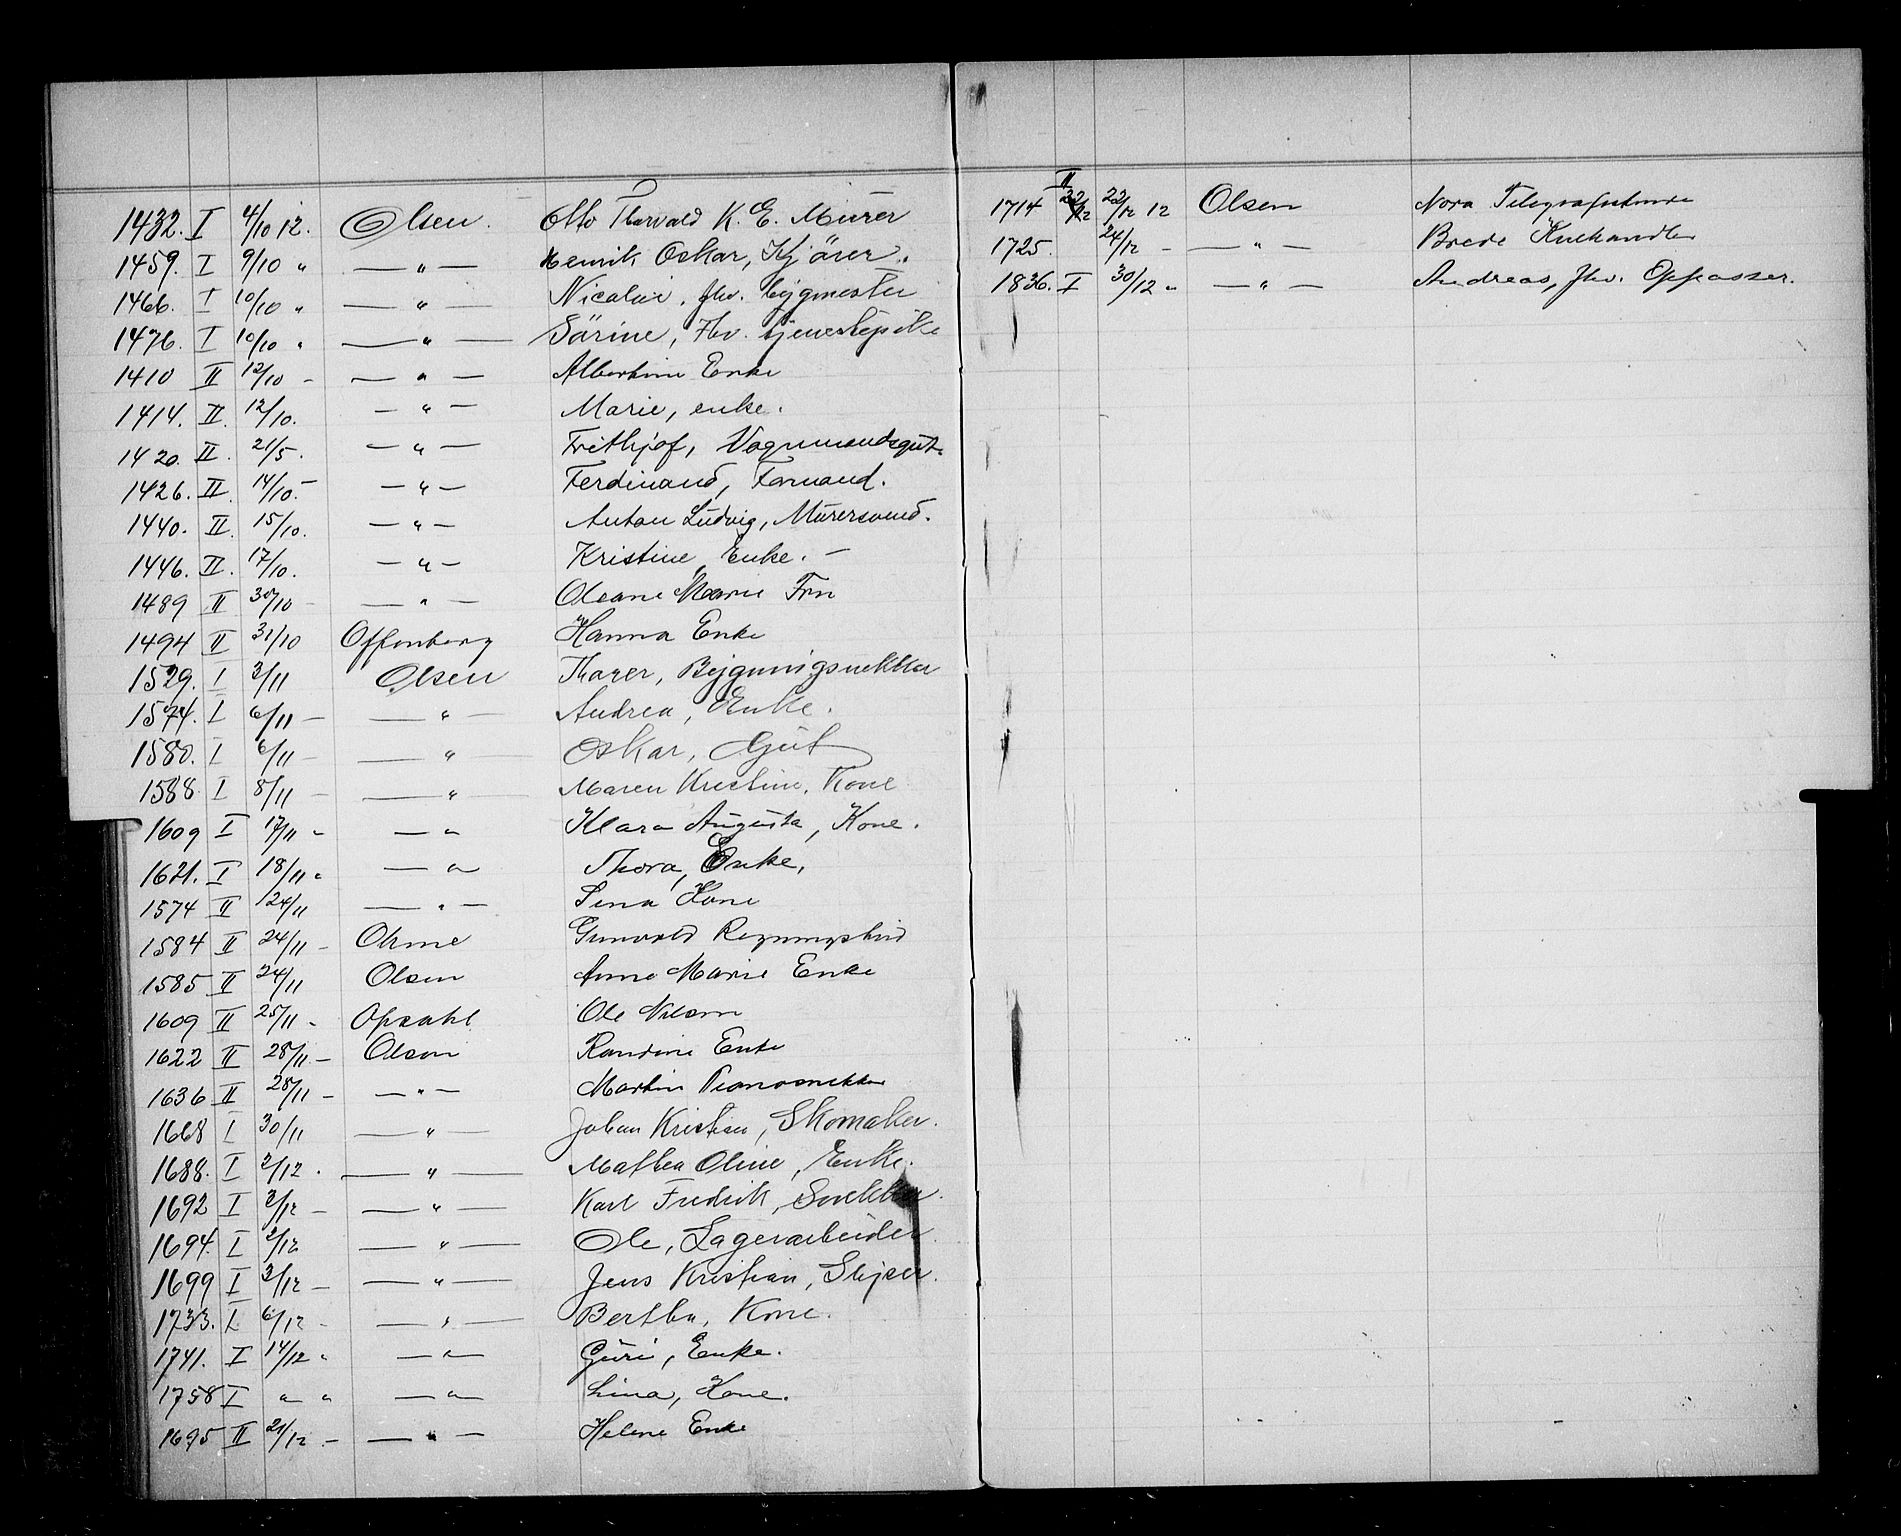 1432. I 4/10 12. Olsen. Otto Thorvald K. E. Murer
1459. I 9/10 " — " — Henrik Oskar, Kjörer.
1466. I 10/10 " — " — Nicolai, fhv. bygmester
1476. I 10/10 " — " — Sörine, Fhv. tjenestepike
1410 II 12/10 - — " — Albertine Enke
1414. II. 12/10. — " — Marie, enke.
1420. II. 21/5. — " — Frithjof, Vognmandsgut.
1426. II. 14/10. — — " — Ferdinand, Formand.
1440. II. 15/10. — " — Anton Ludvig, Murersvend.
1446. II. 17/10. — " — Kristine, Enke. —
1489 II 30/10 - — " — Oleane Marie Fru
1494 II 31/10 Offenberg Hanna Enke
1529. I 3/11 Olsen Thorer, Bygningssnekker
1574. I 6/11 — — " — Andrea, Enke.
1580. I 6/11 — — " — Oskar, Gut
1588 I 8/11 — — " — Maren Kristine, Kone
1609 I 17/11 " — " Klara Augusta, Kone.
1621. I 18/11 " — " Thora, Enke,
1574 II 24/11 — " — Lena Kone
1584 II 24/11 - Ohme Gunvald
1585 II 24/11 Olsen Anne Marie Enke
1609 II 25/11 - Opsahl Ole Nilsen
1622 II 28/11 — Olsen Randine Enke
1636 II 28/11 — — " — Martin Pianosnekker
1668 I 30/11 — " — Johan Kristian, Skomaker.
1688. I 2/12 . — " — Mathea Oline, Enke.
1692 I 3/12 — — " — Karl Fredrik, Snekker.
1694. I 2/12 — " — Ole, Lagerarbeider
1699 I 3/12 — — " — Jens Kristian, Sliper.
1733. I 6/12 - — " — Bertha, Kone.
1741. I 14/12 " — " Guri, Enke.
1758 I " " — " Lina, Kone.
1695 II 21/12 — — " — Helene Enke
1714 II 22/12 12 Olsen Nora
1725. 24/12 - — " — Brede Kulhandler
1836. I 30/12 " — " — Andreas, fhv. Oppasser.